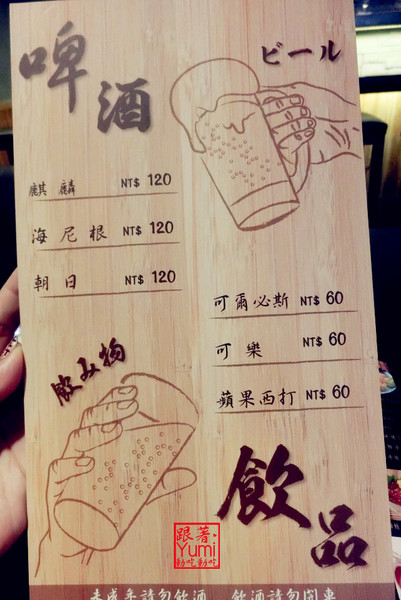 啤酒
ビール
麒麟 NT$ 120
海尼根 NT$ 120
朝日 NT$ 120
可爾必斯 NT$ 60
可樂 NT$ 60
蘋果西打 NT$ 60
飲み物
飲品
跟著
Yumi
動吃動吃
未成年請勿飲酒 飲酒請勿開車